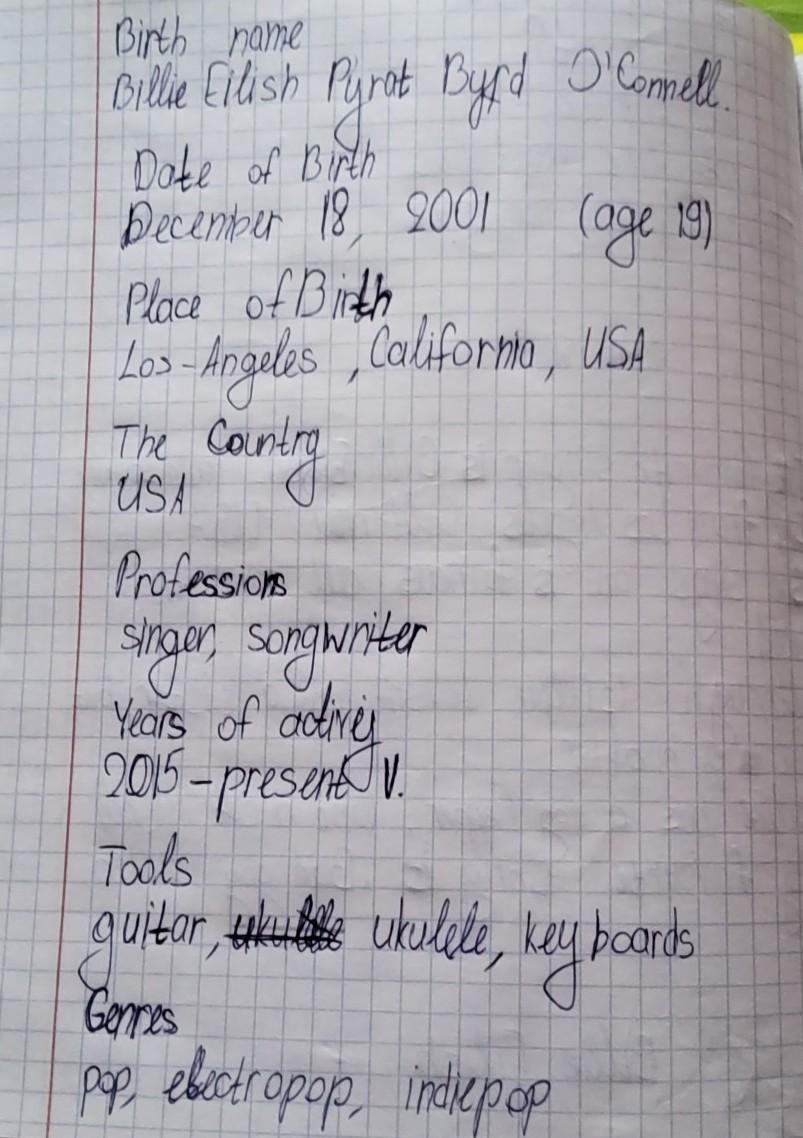 Birth name
Billie Eilish Pyrat Byrd O'Connell.
Date of Birth
December 18, 2001 (age 19)
Place of Birth
Los-Angeles, California, USA
The Country
USA
Professions
singer, songwriter
Years of
2015-present V.
Tools
guitar, ukulele, keyboards
Genres
pop, electropop, indiepop